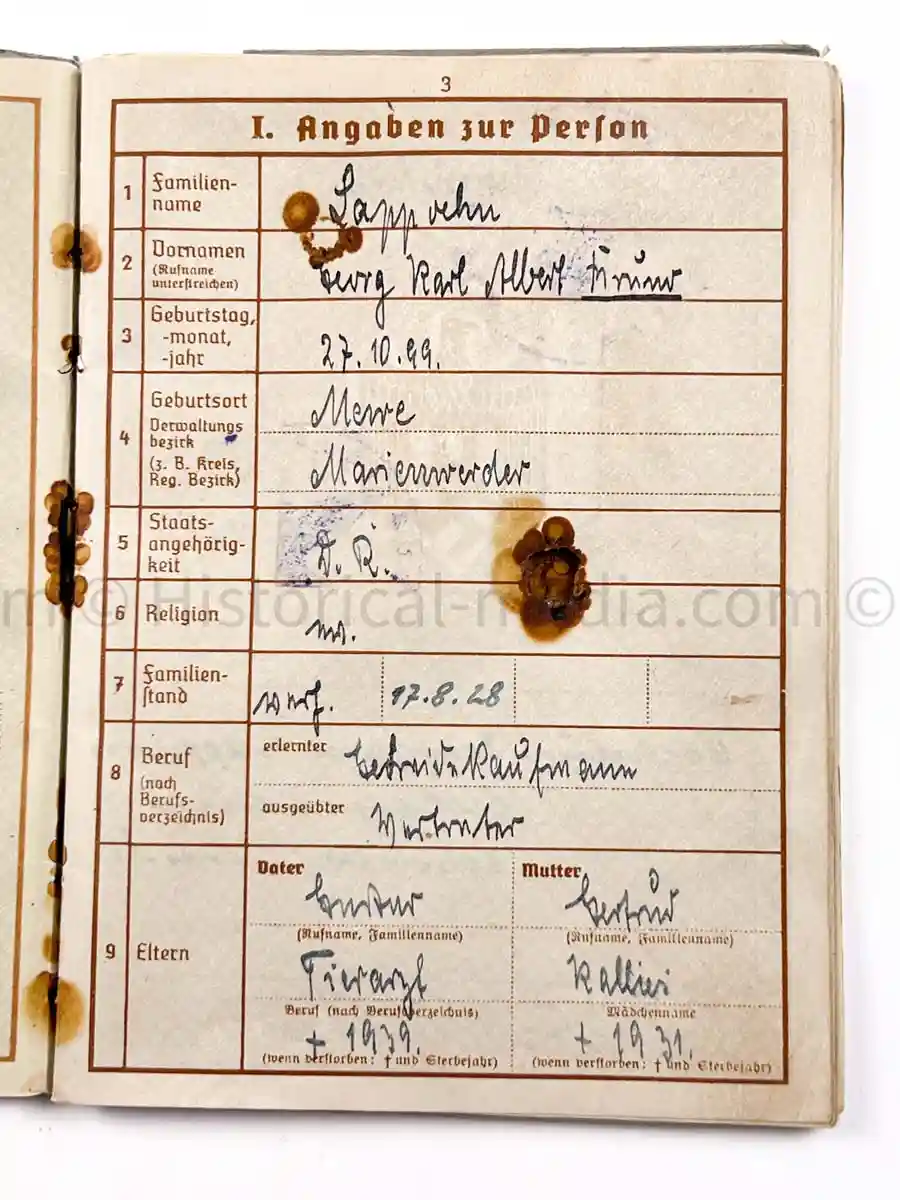 3
I. Angaben zur Person
1 Familien-
name
Lappoehn
2 Vornamen
(Rufname
unterstreichen)
Georg Karl Albert Bruno
3 Geburtstag,
-monat,
-jahr
27.10.99.
4 Geburtsort
Verwaltungs
bezirk
(z. B. Kreis,
Reg. Bezirk)
Mewe
Marienwerder
5 Staats-
angehörig-
keit
D. R.
6 Religion
ev.
7 Familien-
stand
verh.
17.8.28
8 Beruf
(nach
Berufs-
verzeichnis)
erlernter
Getreidekaufmann
ausgeübter
Vertreter
9 Eltern
Vater
Gustav
(Rufname, Familienname)
Tierarzt
Beruf (nach Berufsverzeichnis)
† 1939.
(wenn verstorben: † und Sterbejahr)
Mutter
Gertrud
(Rufname, Familienname)
Mädchenname
† 1931.
(wenn verstorben: † und Sterbejahr)
m © Historical-media.com ©